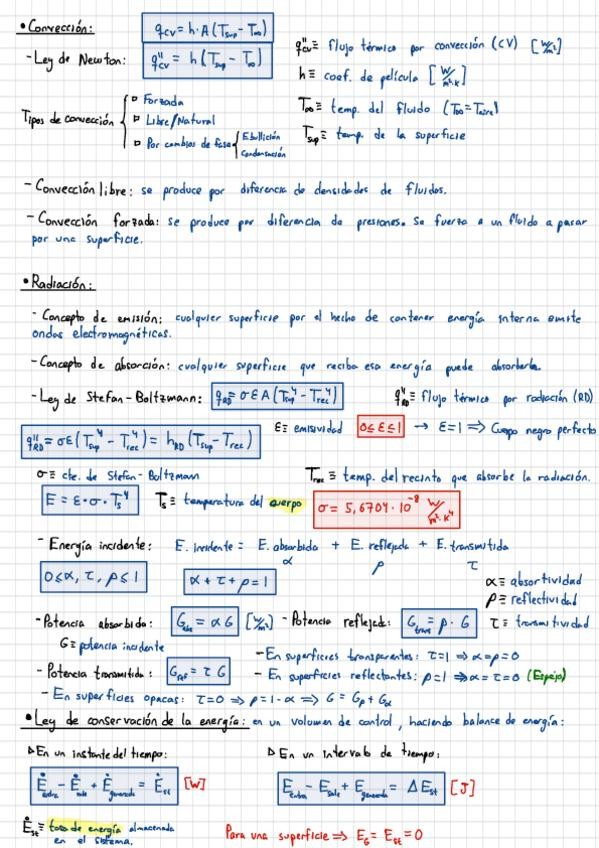 • Convección:
q_cv = h·A (T_sup - T_∞)
- Ley de Newton:
q''_cv = h (T_sup - T_∞)
q''_cv ≡ flujo térmico por convección (CV) [W/m²]
h ≡ coef. de película [W/m²·K]
T_∞ ≡ temp. del fluido (T_∞ = T_aire)
T_sup ≡ temp. de la superficie
Tipos de convección
▫ Forzada
▫ Libre/Natural
▫ Por cambios de fase
Ebullición
Condensación
- Convección libre: se produce por diferencia de densidades de fluidos.
- Convección forzada: se produce por diferencia de presiones. Se fuerza a un fluido a pasar
por una superficie.
• Radiación:
- Concepto de emisión: cualquier superficie por el hecho de contener energía interna emite
ondas electromagnéticas.
- Concepto de absorción: cualquier superficie que reciba esa energía puede absorberla.
- Ley de Stefan-Boltzmann:
q_RD = σεA (T_sup⁴ - T_rec⁴)
q''_RD ≡ flujo térmico por radiación (RD)
q''_RD = σε (T_sup⁴ - T_rec⁴) = h_RD (T_sup - T_rec)
ε ≡ emisividad
0 ≤ ε ≤ 1
→ ε = 1 ⇒ Cuerpo negro perfecto
σ ≡ cte. de Stefan-Boltzmann
T_rec ≡ temp. del recinto que absorbe la radiación.
E = ε·σ·T_s⁴
T_s ≡ temperatura del cuerpo
σ = 5,6704·10⁻⁸ W/m²·K⁴
- Energía incidente:
E. incidente = E. absorbida + E. reflejada + E. transmitida
α ρ τ
0 ≤ α, τ, ρ ≤ 1
α + τ + ρ = 1
α ≡ absortividad
ρ ≡ reflectividad
τ ≡ transmitividad
- Potencia absorbida:
G_abs = α G
[W/m²]
- Potencia reflejada:
G_trans = ρ · G
G ≡ potencia incidente
- Potencia transmitida:
G_ref = τ G
- En superficies transparentes: τ = 1 ⇒ α = ρ = 0
- En superficies reflectantes: ρ = 1 ⇒ α = τ = 0 (Espejo)
- En superficies opacas: τ = 0 ⇒ ρ = 1 - α ⇒ G = G_ρ + G_α
• Ley de conservación de la energía: en un volumen de control, haciendo balance de energía:
▷ En un instante del tiempo:
Ė_entra - Ė_sale + Ė_generada = Ė_st
[W]
▷ En un intervalo de tiempo:
E_entra - E_sale + E_generada = ΔE_st
[J]
Ė_st ≡ tasa de energía almacenada
en el sistema.
Para una superficie ⇒ E_G = E_st = 0